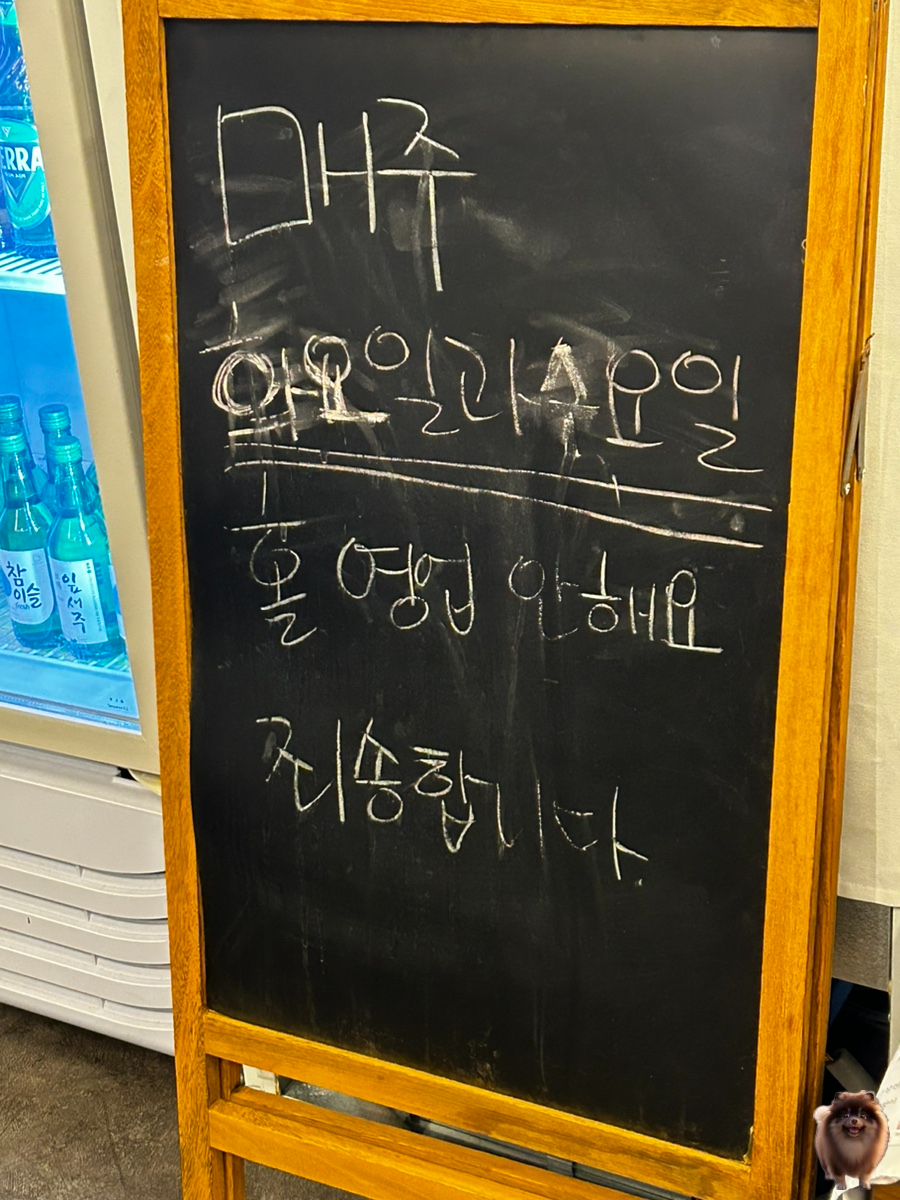 매주
화요일과 수요일
홀 영업 안해요
죄송합니다.
ERRA
참이슬
fresh
잎새주